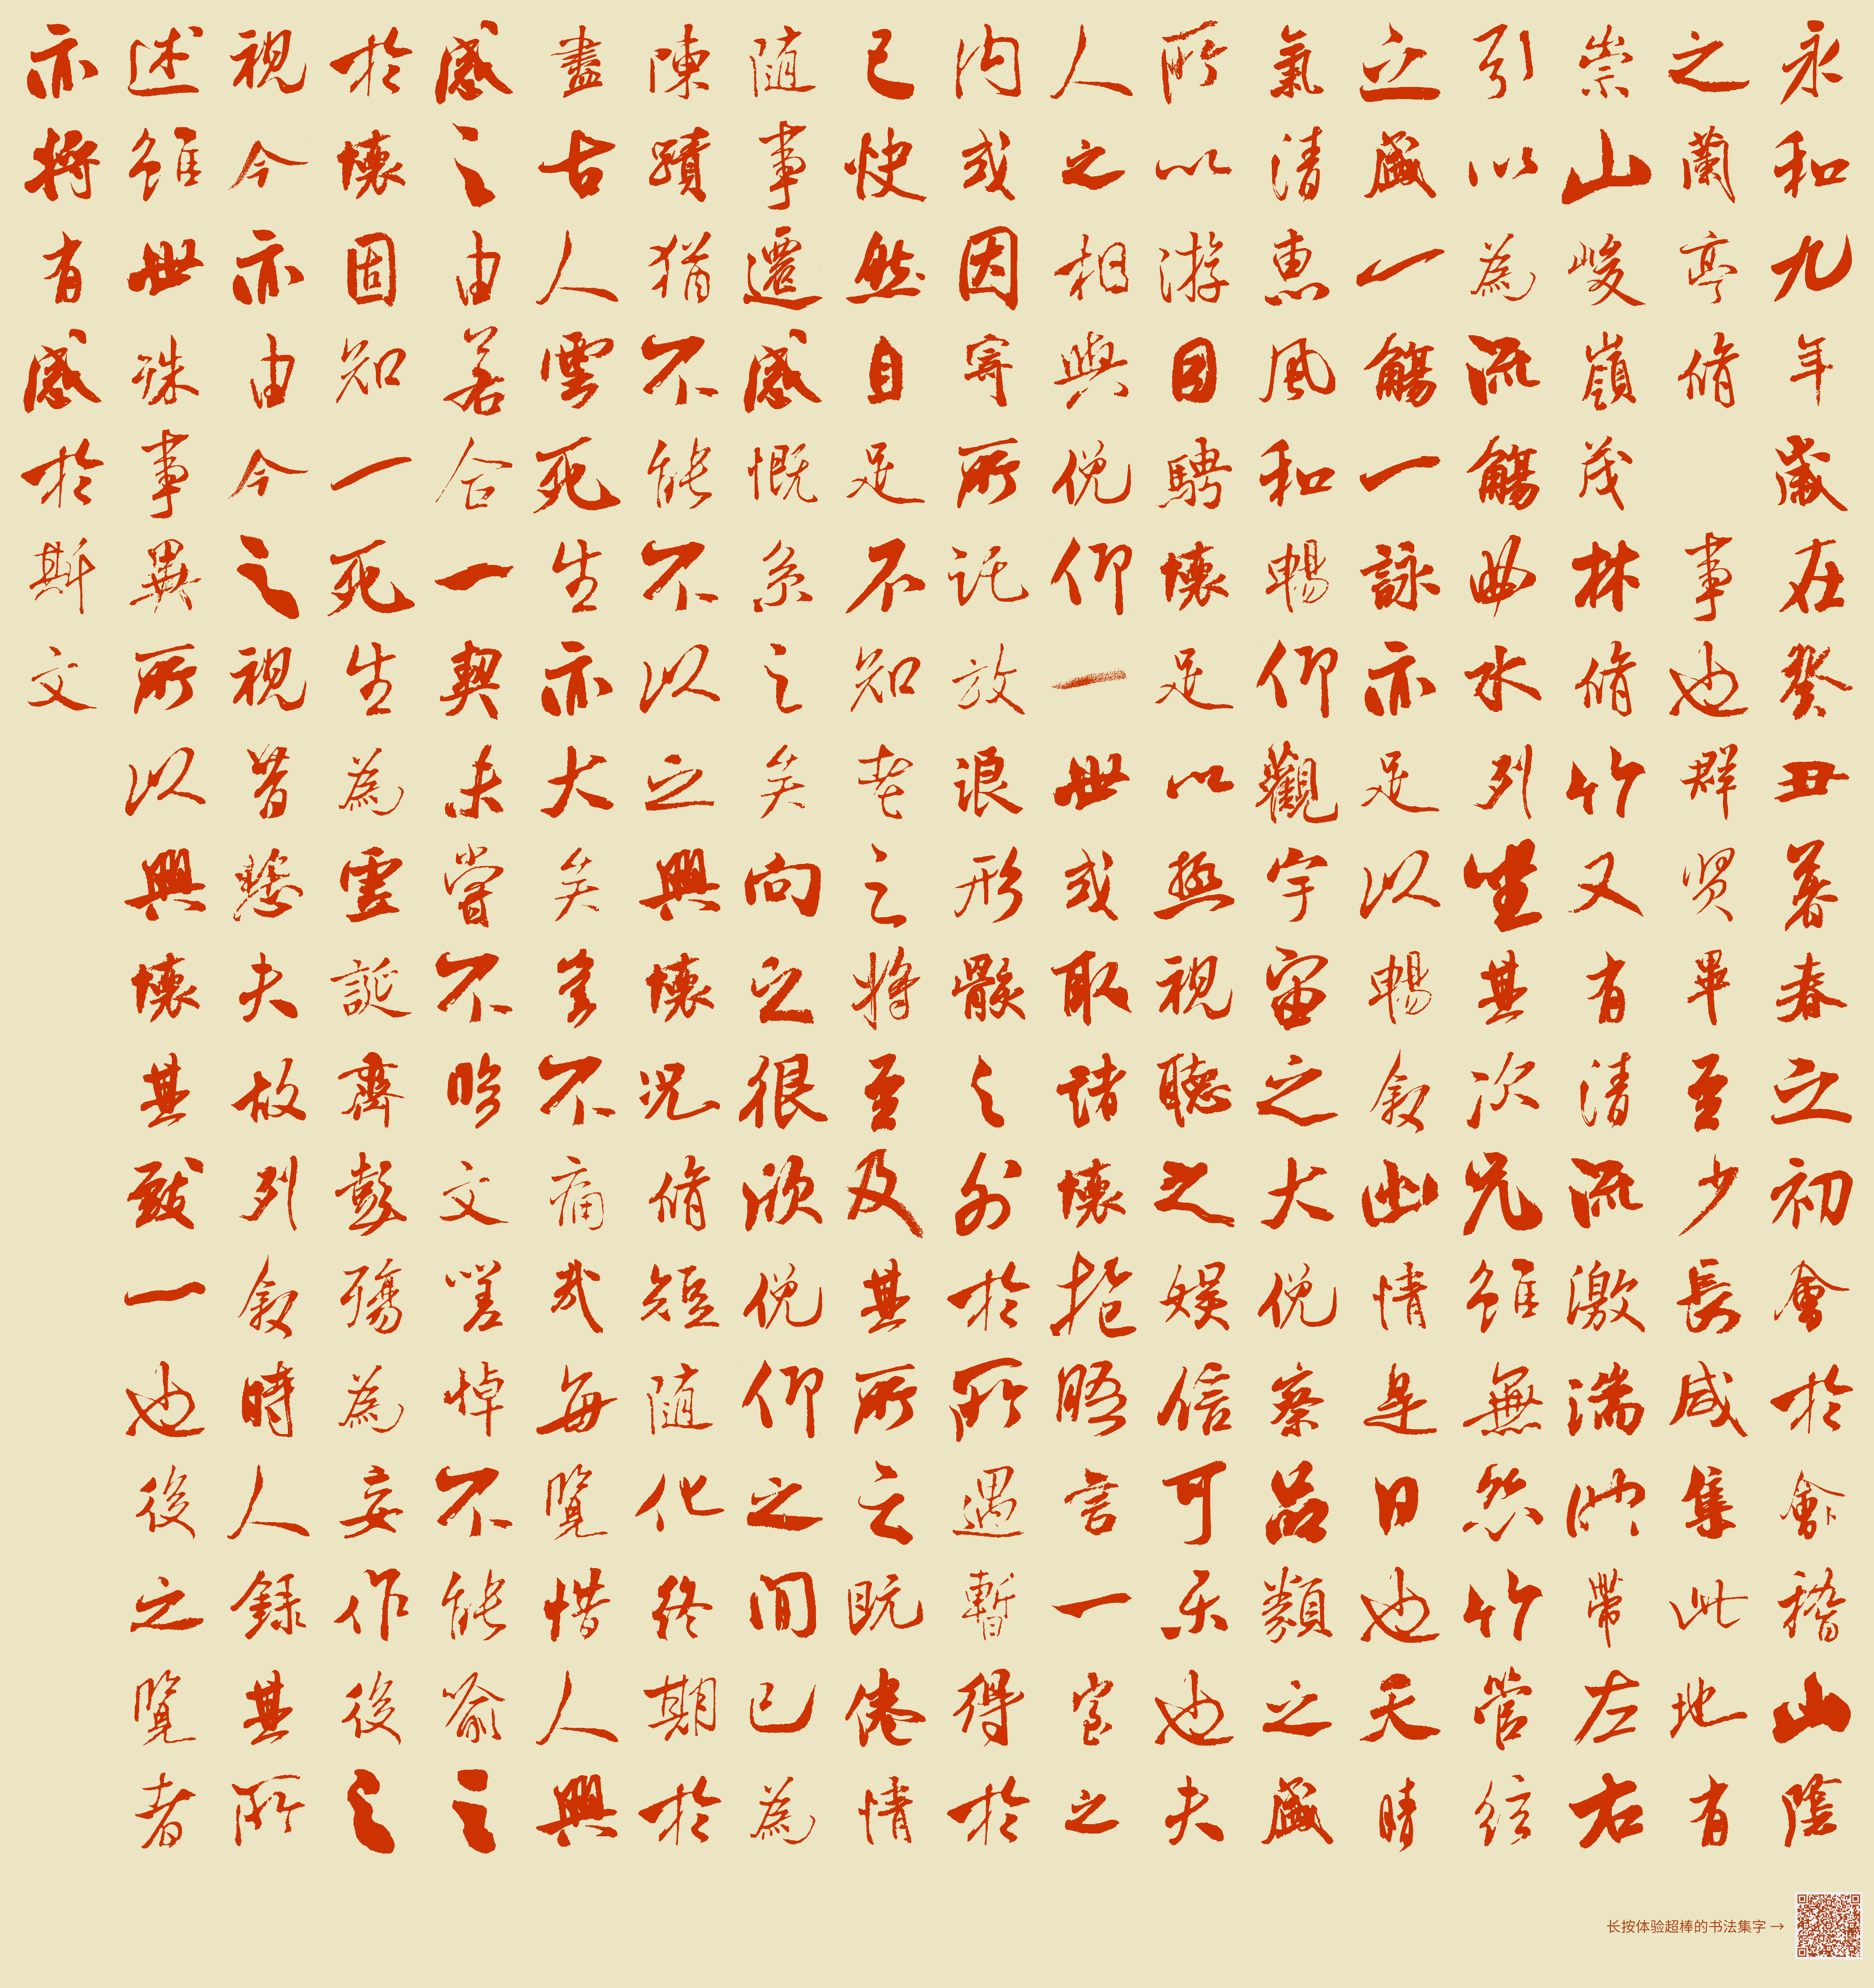 永和九年歲在癸丑暮春之初會於會稽山陰
之蘭亭脩事也群贤畢至少長咸集此地有
崇山峻嶺茂林脩竹又有清流激湍映帶左右
引以為流觴曲水列坐其次兄雖無絲竹管絃
之盛一觴一詠亦足以暢敘幽情是日也天晴
氣清惠風和暢仰觀宇宙之大俛察品類之盛
所以游目騁懷足以極視聽之娛信可乐也夫
人之相與俛仰一世或取諸懷抱晤言一室之
內或因寄所託放浪形骸之外於所遇暫得於
己快然自足不知老之將至及其所之既倦情
隨事遷感慨系之矣向之很欣俛仰之間已為
陳蹟猶不能不以之興懷況脩短隨化終期於
盡古人雲死生亦大矣豈不痛哉每覽惜人興
感之由若合一契未嘗不臨文嗟悼不能喻之
於懷固知一死生為虛誕齊彭殤為妄作後之
視今亦由今之視昔悲夫故列敘時人錄其所
述雖世殊事異所以興懷其致一也後之覽者
亦將有感於斯文
长按体验超棒的书法集字 →